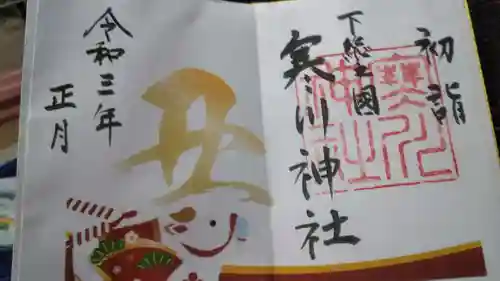 初詣
下総之國
寒川神社
寒川
神社
丑
令和三年
正月